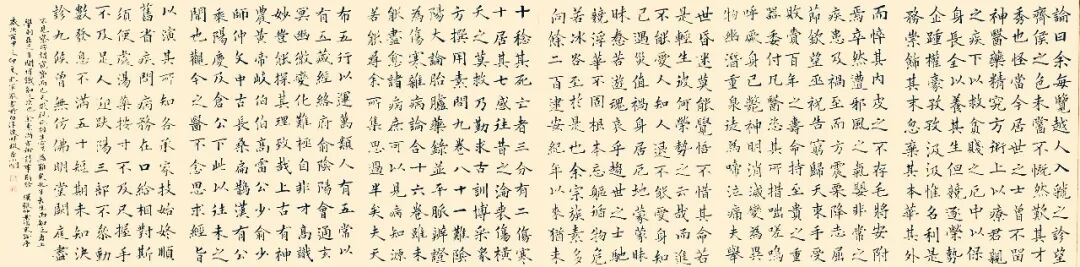 論曰余每覽越人入虢之診望
齊侯之色未嘗不慨然歎其才
秀也怪當今居世之士曾不留
神醫藥精究方術上以療君親
之疾下以救貧賤之厄中以保
身長全以養其生但競逐榮勢
企踵權豪孜孜汲汲惟名利是
務崇飾其末忽棄其本華其外
而悴其內皮之不存毛將安附
焉卒然遭邪風之氣嬰非常之
疾患及禍至而方震栗降志屈
節欽望巫祝告窮歸天束手受
敗賫百年之壽命持至貴之重
器委付凡醫恣其所措咄嗟嗚
呼厥身已斃神明消滅變為異
物幽潛重泉徒為啼泣痛夫舉
世昏迷莫能覺悟不惜其命若
是輕生彼何榮勢之云哉而進
不能愛人知人退不能愛身知
己遇災值禍身居厄地蒙蒙昧
昧惷若遊魂哀乎趨世之士馳
競浮華不固根本忘軀徇物危
若冰谷至於是也余宗族素多
向餘二百建安紀年以來猶未
十稔其死亡者三分有二傷寒
十居其七感往昔之淪喪傷橫
夭之莫救乃勤求古訓博采眾
方撰用素問九卷八十一難陰
陽大論胎臚藥錄並平脈辨證
為傷寒雜病論合十六卷雖未
能盡愈諸病庶可以見病知源
若能尋余所集思過半矣夫天
布五行以運萬類人有五常以
有五藏經絡府俞陰陽會通玄
冥幽微變化難極自非才高識
妙豈能探其理致哉上古有神
農黃帝岐伯伯高雷公少俞少
師仲文中古長桑扁鵲漢有公
乘陽慶及倉公下此以往未之
聞也觀今之醫不念思求經旨
以演其所知各承家技始終順
舊省疾問病務在口給相對斯
須便處湯藥按寸不及尺握手
不及足人迎趺陽三部不參動
數發息不滿五十短期未知決
診九候曾無仿佛明堂闕庭盡